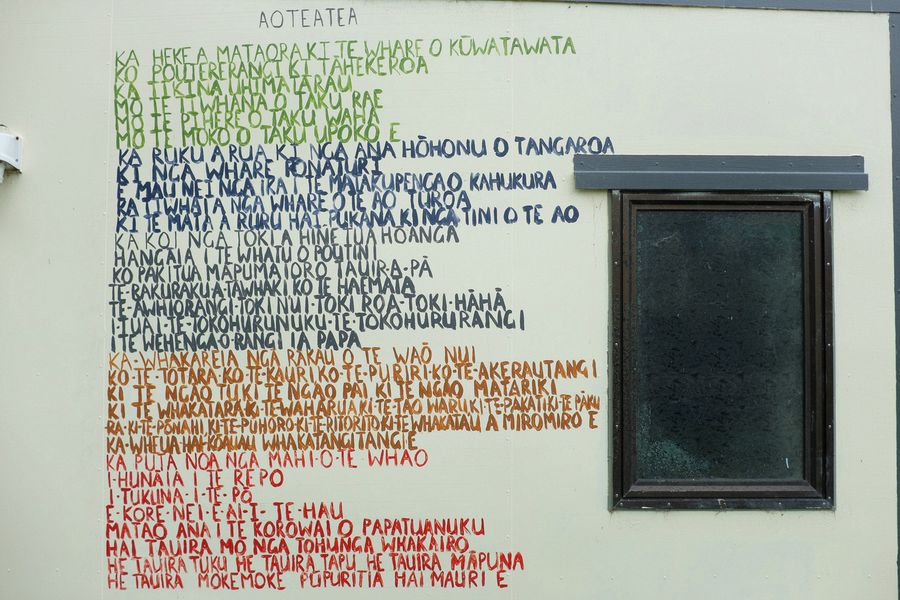 AOTEATEA
KA HEKE A MATAORA KI TE WHARE O KŪWATAWATA
KO POUTERERANGI KI TĀHEKEROA
KA TIKINA UHIMATARAU
MŌ TE TIWHANA O TAKU RAE
MŌ TE PIHERE O TAKU WAHA
MŌ TE MOKO O TAKU UPOKO E
KA RUKU A RUA KI NGA ANA HŌHONU O TANGAROA
KI NGA WHARE PONATURI
E MAU NEI NGA IKA I TE MATAKUPENGA O KAHUKURA
KA TIWHAIA NGA WHARE O TE AO TUROA
KI TE MATA A RURU HAI PUKANA KI NGA TINI O TE AO
KA KOI NGA TOKI A HINE TUA HOANGA
HANGAIA I TE WHATU O POUTINI
KO PAKITUA MAPUMAIORO TAUIRA-A-PĀ
TE-RAKURAKU-A-TAWHAKI KO TE HAEMATA
TE-AWHIORANGI-TOKI NUI-TOKI ROA-TOKI-HĀHĀ
I-TUAI-TE-TOKOHURUNUKU-TE-TOKOHURURANGI
I TE WEHENGA-O-RANGI IA PAPA
KA-WHAKAREIA NGA RAKAU O TE WAŌ NUI
KO TE-TOTARA-KO-TE-KAURI KO-TE-PURIRI-KO-TE-AKERAUTANGI
KI TE NGAO TUKI TE NGAO PAI KI TE NGAO MATARIKI
KI TE WHAKATARA-KI-TE-WAHARUA-KI-TE-TAO WARUKI-TE-PAKATIKI-TE-PĀKU
RA-KI-TE-PŌNAHI KI-TE-PUHORO-KI-TE-RITORITO KI-TE WHAKATAU A MIROMIRO E
KA-WHEUA HAI-KOAUAU WHAKATANGITANGI E
KA PUTA NOA NGA MAHI-O-TE WHAO
I-HUNAIA I TE REPO
I-TUKUNA-I-TE-PŌ
E-KORE-NEI-E AI-I-TE-HAU
MATAO ANA I TE KOROWAI O PAPATUANUKU
HAI TAUIRA MO NGA TOHUNGA WHAKAIRO
HE TAUIRA TUKU HE TAUIRA TAPU HE TAUIRA MĀPUNA
HE TAUIRA MOKEMOKE PUPURITIA HAI MAURI E